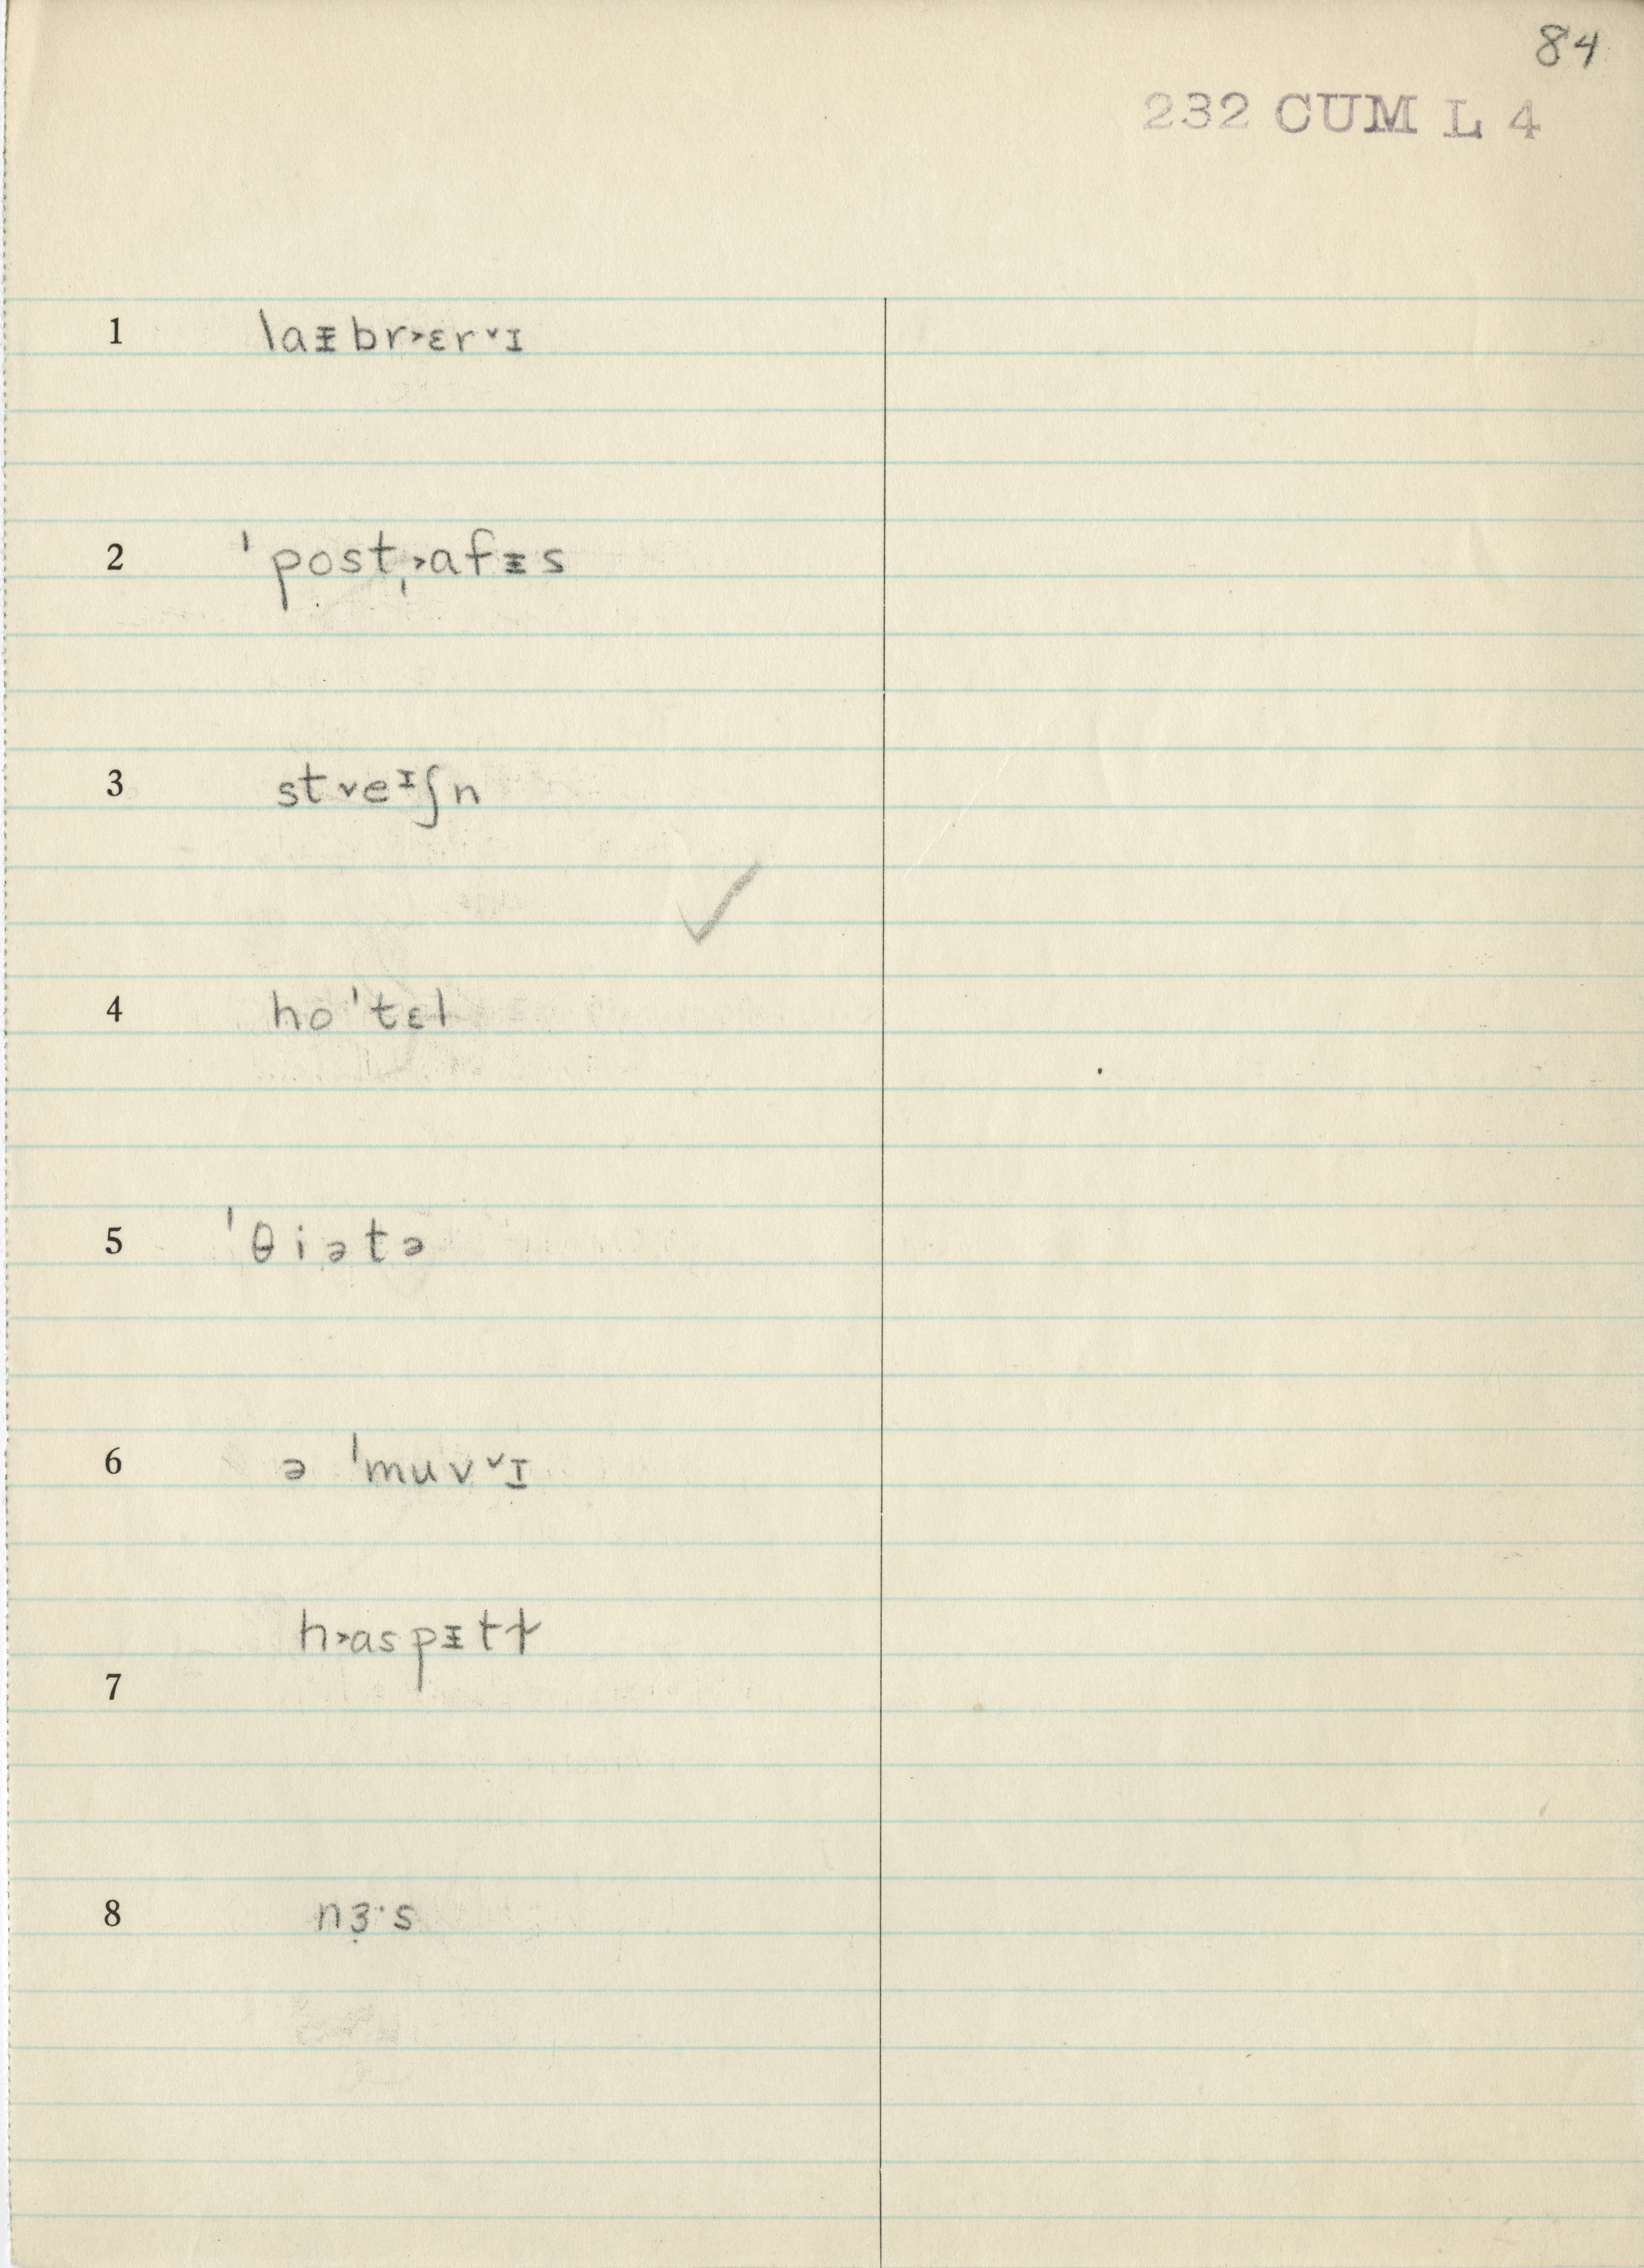 84
232 CUM L 4
1 laᵻbr˃ɛr˅ɪ
2 ˈpostˌ˃afᵻs
3 st˅eᶦʃn
✓
4 hoˈtɛl
5 ˈθiətə
6 ə ˈmuv˅ɪ
h˃aspᵻtɫ
7
8 nɜ̣·s